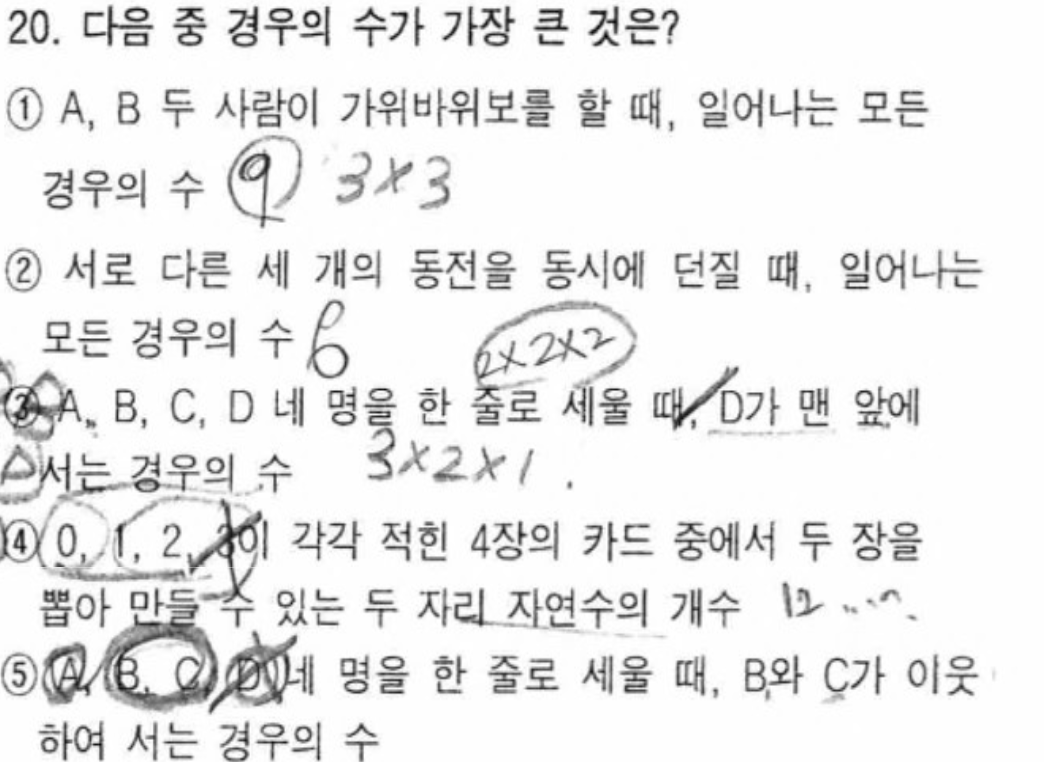 20. 다음 중 경우의 수가 가장 큰 것은?
① A, B 두 사람이 가위바위보를 할 때, 일어나는 모든
경우의 수 9 3×3
② 서로 다른 세 개의 동전을 동시에 던질 때, 일어나는
모든 경우의 수 6 2×2×2
③ A, B, C, D 네 명을 한 줄로 세울 때, D가 맨 앞에
서는 경우의 수 3×2×1
④ 0, 1, 2, 3이 각각 적힌 4장의 카드 중에서 두 장을
뽑아 만들 수 있는 두 자리 자연수의 개수 12
⑤ A, B, C, D 네 명을 한 줄로 세울 때, B와 C가 이웃
하여 서는 경우의 수